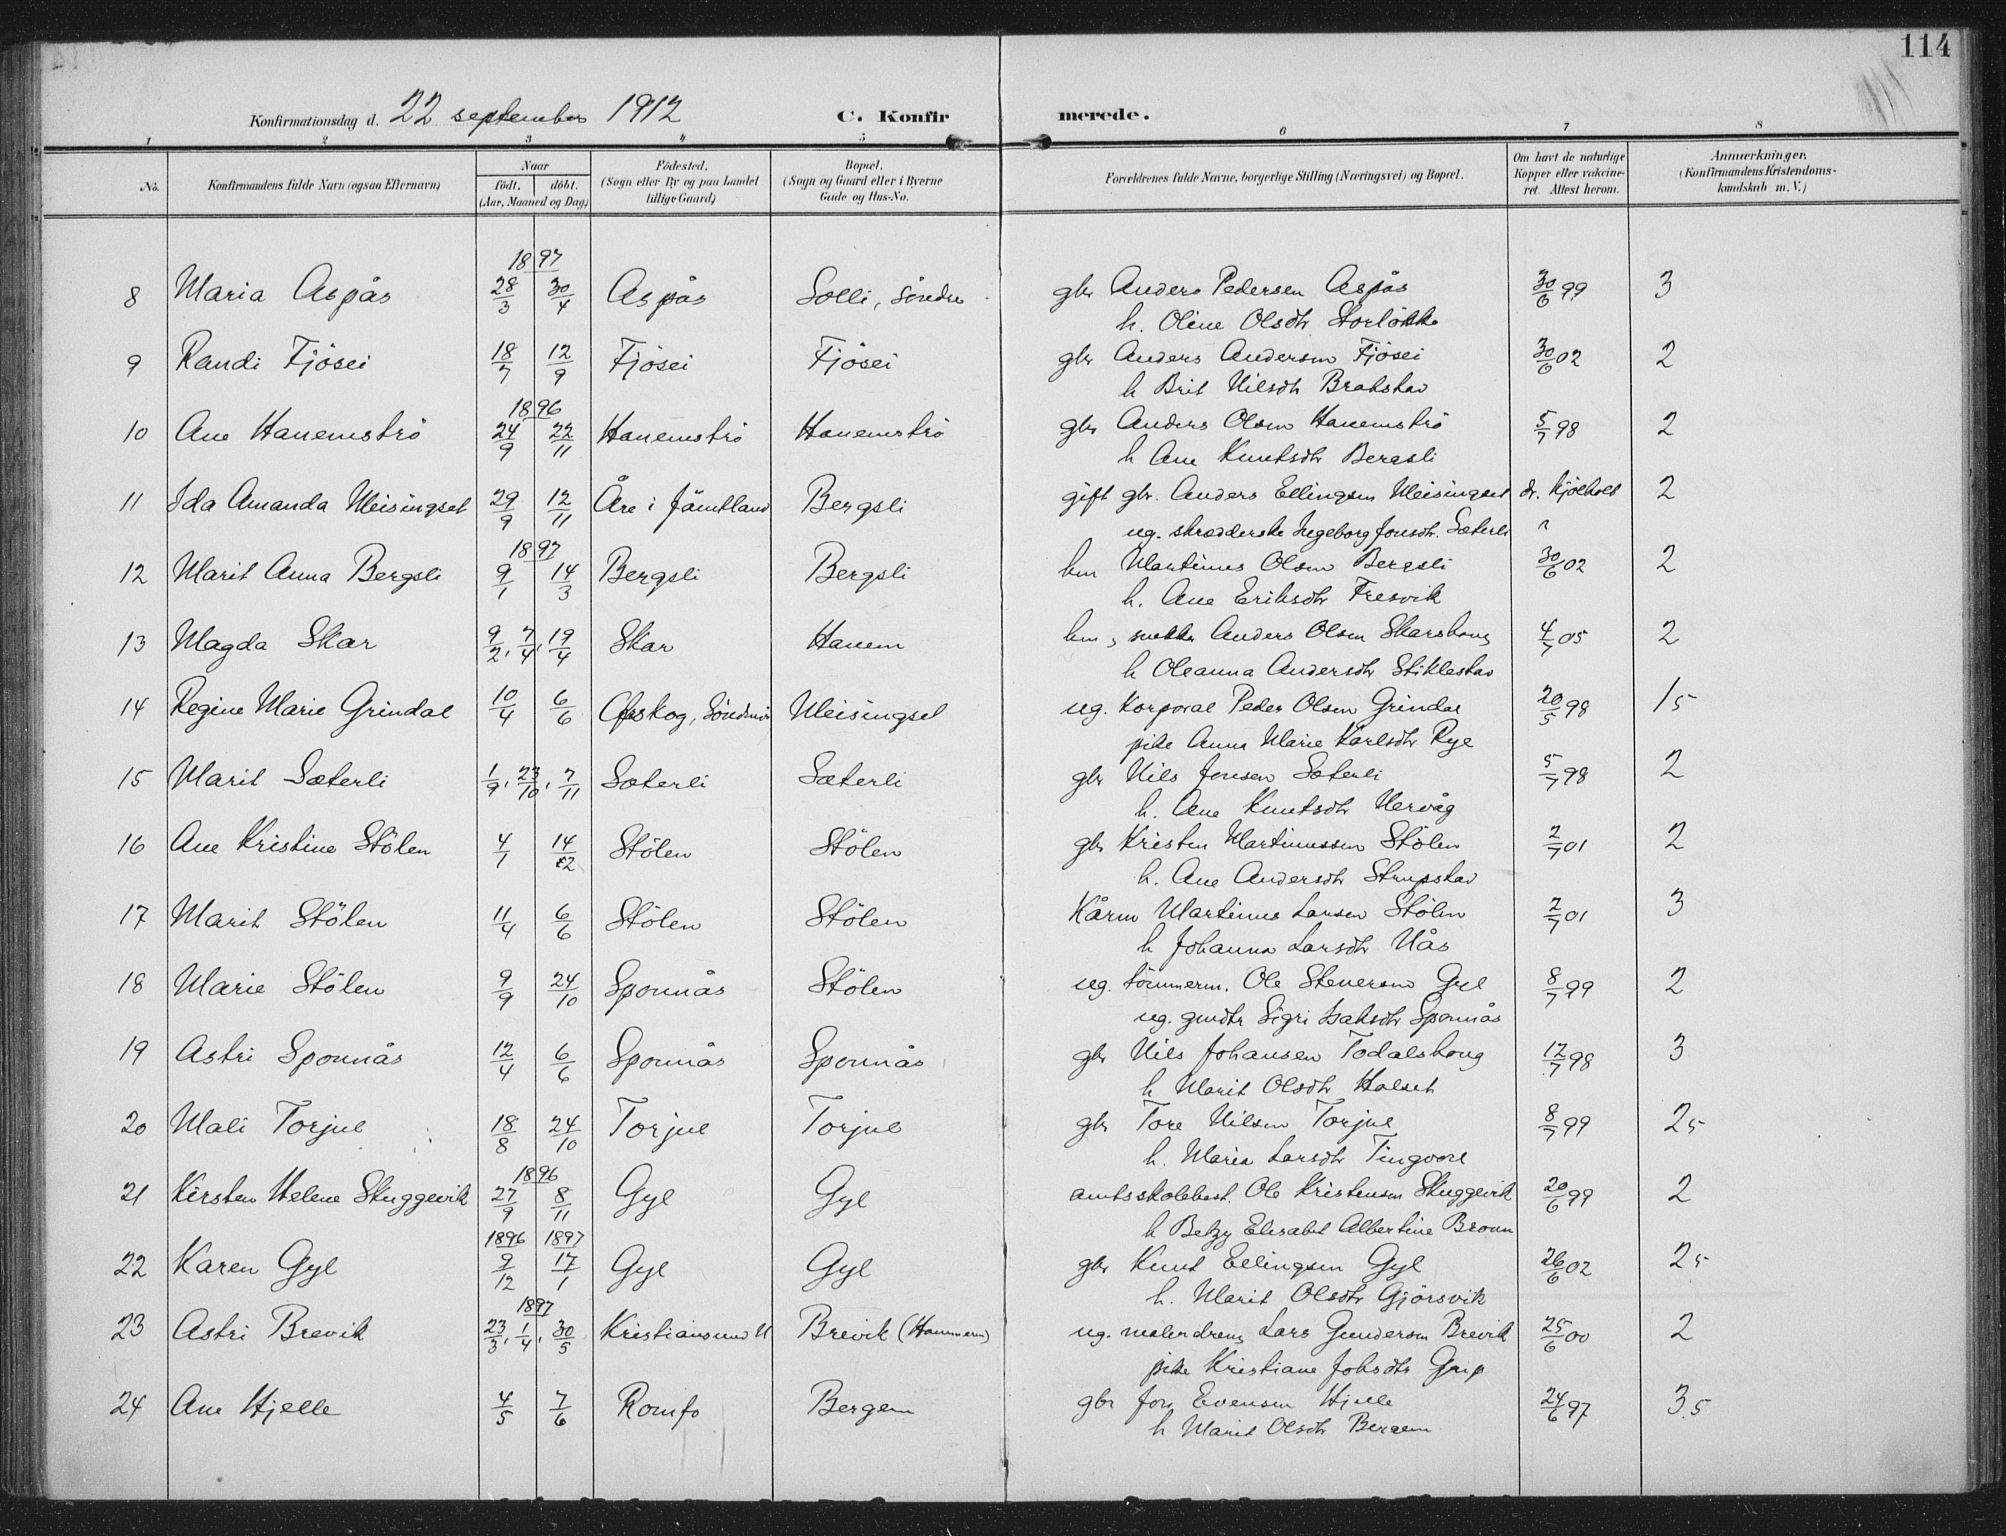 114
Konfirmationsdag d. 22 september 1912 C. Konfirmerede.
1 2 3 4 5 6 7 8
No. Konfirmandens fulde Navn (ogsaa Efternavn) Naar født. døbt. (Aar, Maaned og Dag) Födested. (Sogn eller By og paa Landet tillige Gaard) Bopæl. (Sogn og Gaard eller i Byerne Gade og Hus-No. Forældrenes fulde Navne, borgerlige Stilling (Næringsvei) og Bopæl. Om havt de naturlige Kopper eller vakcineret. Attest herom. Anmærkninger. (Konfirmandens Kristendomskundskab m. V.)
1897
8 Maria Aspås 28/3 30/4 Aspås Solli, Söndre gbr Anders Pedersen Aspås 30/6 99 3
h. Oline Olsdtr Storløkk
9 Randi Fjösei 18/7 12/9 Fjösei Fjösei gbr Anders Andersen Fjösei 30/6 02 2
h Brit Nilsdtr Brakstad
1896
10 Ane Hanemströ 24/9 22/11 Hanemströ Hanemströ gbr Anders Olsen Hanemströ 5/7 98 2
h Ane Knutsdtr Bergsli
11 Ida Amanda Meisingset 29/9 12/11 Åre i Jämtland Bergsli gift gbr. Anders Ellingsen Meisingset dr. Kjölholt 2
ug. skrædderske Ingeborg Jonsdtr. Sæterli
1897
12 Marit Anna Bergsli 9/1 14/3 Bergsli Bergsli hm Martinus Olsen Bergsli 30/6 02 2
h. Ane Eriksdtr Fresvik
13 Magda Skar 9/2, 7/4, 19/4 Skar Hanem hm, snekker Anders Olsen Skarshaug 4/7 05 2
h Oleanna Andersdtr Stiklestad
14 Regine Marie Grindal 10/4 6/6 Ørskog, Söndmör Meisingset ug. korporal Peder Olsen Grindal 20/5 98 15
pike Anna Marie Karlsdtr Rye
15 Marit Sæterli 1/9, 23/10, 7/11 Sæterli Sæterli gbr Nils Jonsen Sæterli 5/7 98 2
h. Ane Knutsdtr Hervåg
16 Ane Kristine Stölen 4/1 14/2 Stölen Stölen gbr Kristen Martinussen Stölen 2/7 01 2
h. Ane Andersdtr Strupstad
17 Marit Stölen 11/4 6/6 Stölen Stölen Kårm Martinus Larsen Stölen 2/7 01 3
h Johanna Larsdtr Nås
18 Marie Stölen 9/9 24/10 Sponnås Stölen ug. tömmerm. Ole Stenersen Gyl 8/7 99 2
ug. gmdtr Sigri Isaksdtr Sponnås
19 Astri Sponnås 12/4 6/6 Sponnås Sponnås gbr Nils Johansen Todalshaug 12/7 98 3
h Marit Olsdtr Halset
20 Mali Torjul 18/8 24/10 Torjul Torjul gbr Tore Nilsen Torjul 8/7 99 25
h. Maria Larsdtr Tingvoll
1896
21 Kirsten Helene Skuggevik 27/9 8/11 Gyl Gyl amtsskolebest. Ole Kristensen Skuggevik 20/6 99 2
h Betzy Elisabet Albertine Broun
1896 1897
22 Karen Gyl 9/12 17/1 Gyl Gyl gbr Knut Ellingsen Gyl 26/6 02 25
h. Marit Olsdtr Gjörsvik
1897
23 Astri Brevik 23/3, 1/4, 30/5 Kristiansund N Brevik (Hammern) ug. malerdreng Lars Gundersen Brevik 25/6 00 2
pike Kristiane Johsdtr Grip
24 Ane Hjelle 4/5 7/6 Romfo Bergem gbr Jon Evensen Hjelle 24/6 97 3.5
h Marit Olsdtr Bergem